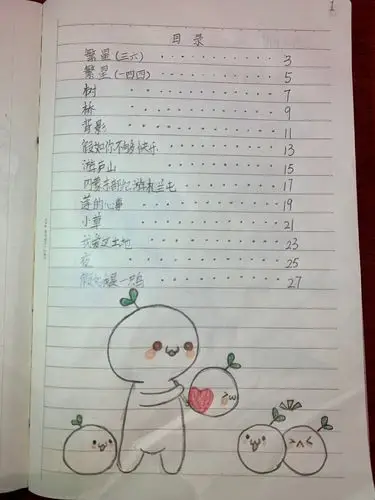 1
目 录
繁星(三六) 3
繁星(一四四) 5
树 7
桥 9
背影 11
假如你不够快乐 13
游庐山 15
内蒙 17
莲的心事 19
小草 21
我爱这土地 23
25
假如我是一只鸟 27